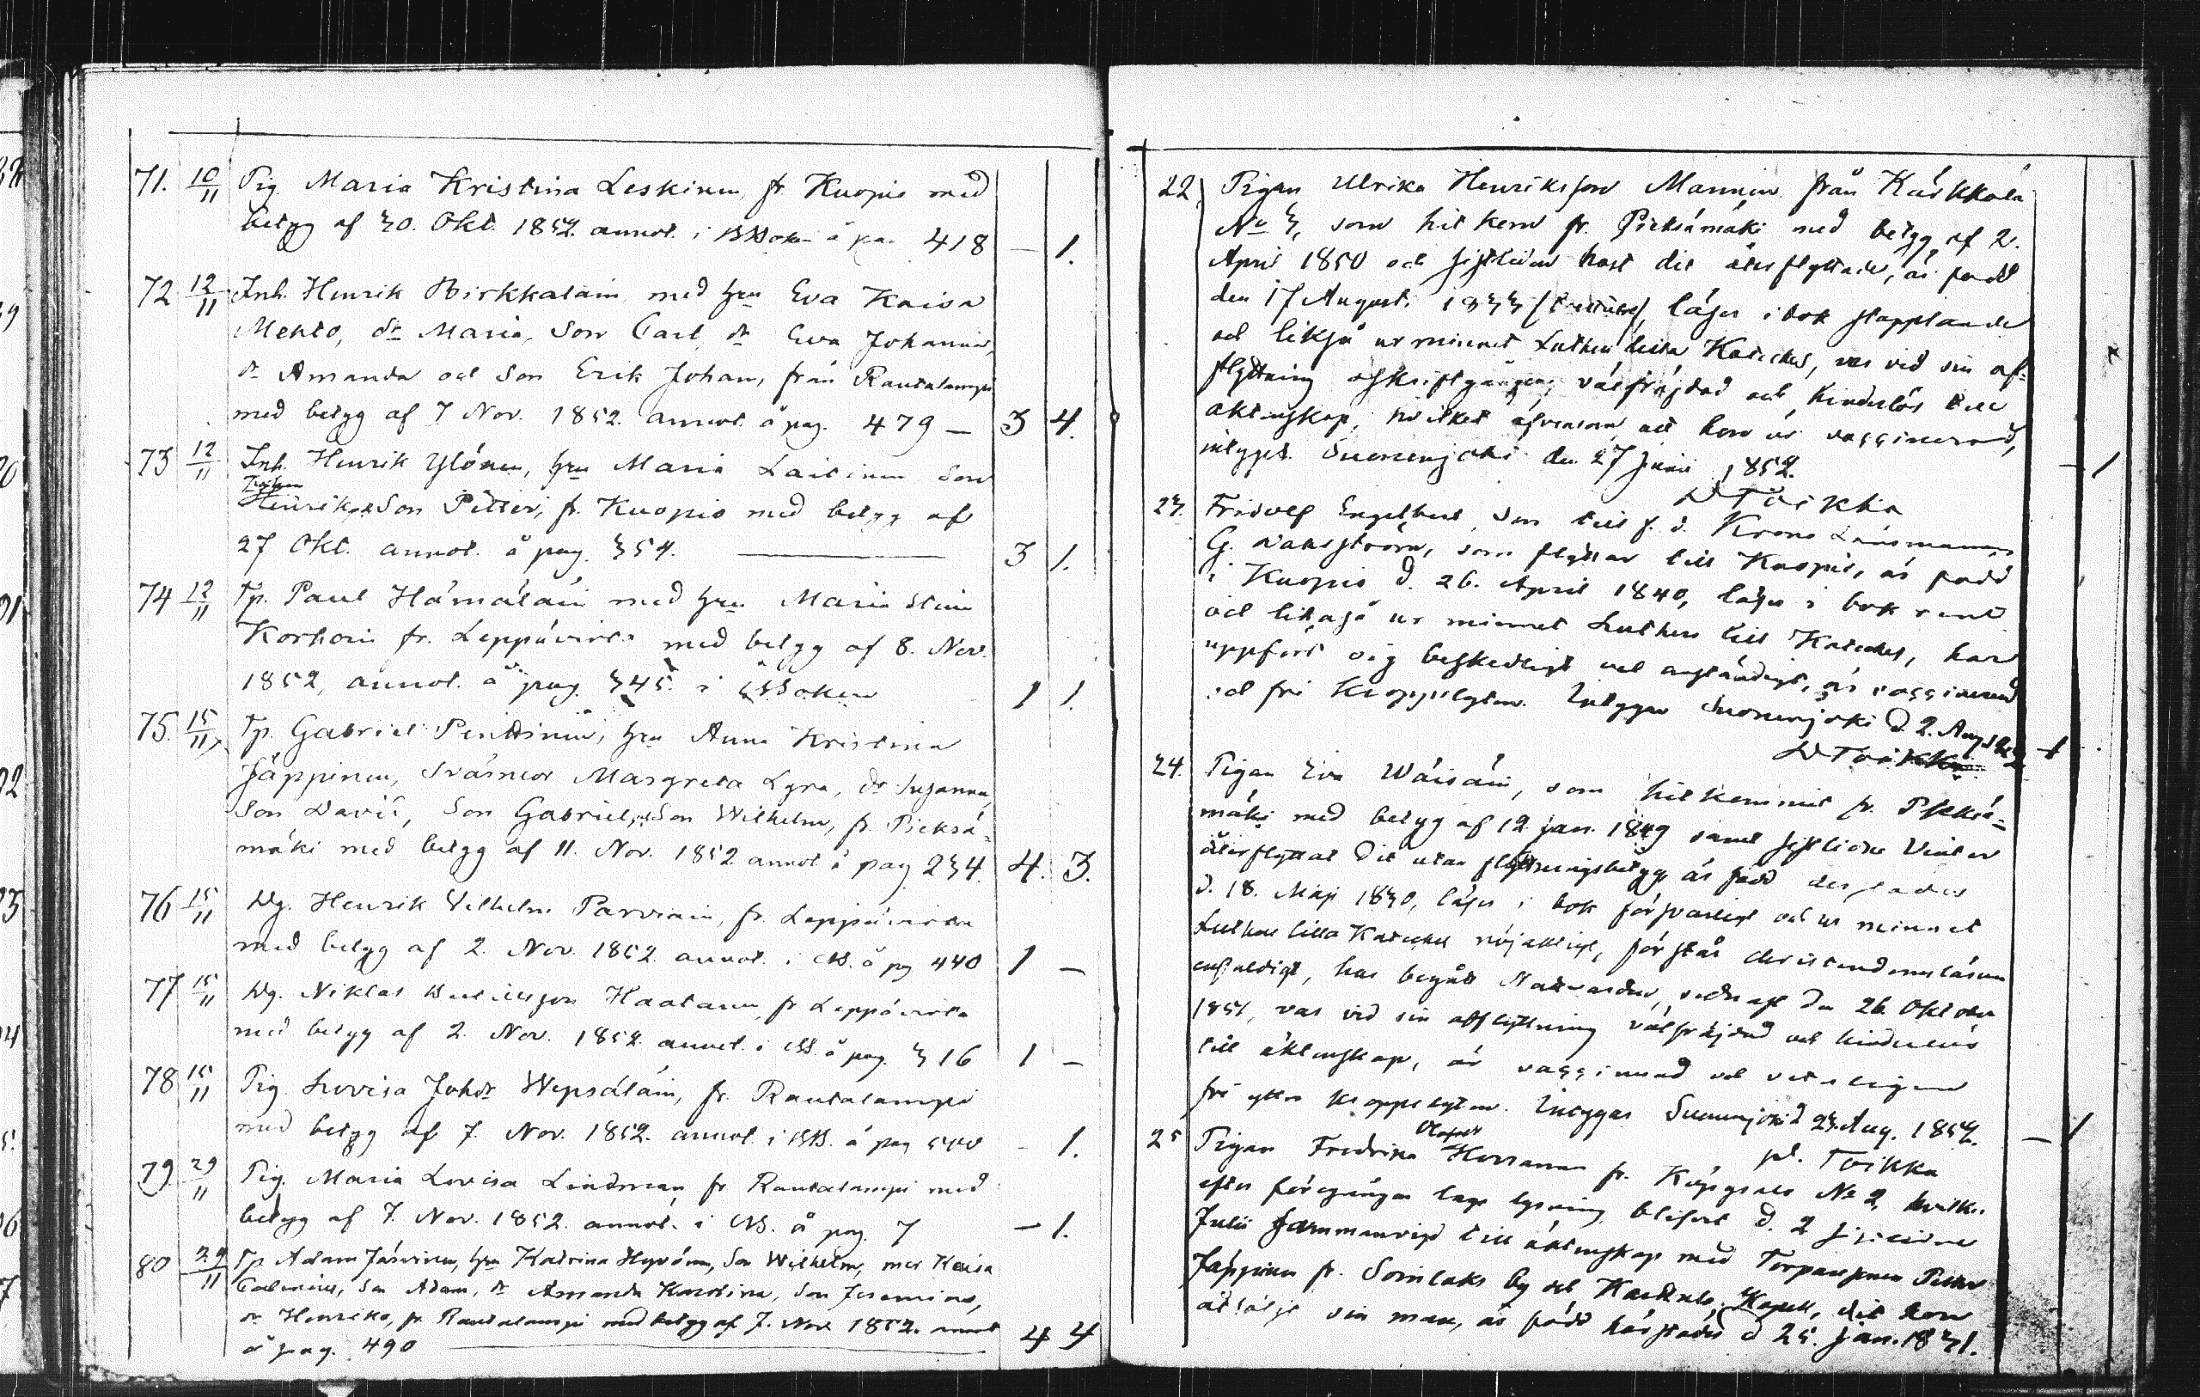 71. 10/11 Pig. Maria Kristina Leskinen, fr. Kuopio med
betyg af 30. Okt. 1852. annot. i å pa. 418 — 1.
72 12/11 Inh. Henrik Pirkkalain med hru Eva Kaisa
Mehto, dr Maria, Son Carl, dr Eva Johanna,
dr Amanda och Son Erik Johan, från Rautalampi
med betyg af 7 Nov. 1852. annot. å pag. 479 — 3 4.
73 12/11 Inh. Henrik Ylönen, hru Maria Laitinen Son
Henrik, Son Petter, fr. Kuopio med betyg af
27 Okt. annot. å pag. 354. — 3 1.
74 12/11 Tp. Paul Hämäläin med hru Maria Stina
Korhoin fr. Leppävirta med betyg af 8. Nov.
1852, annot. å pag. 345. i 1 1.
75. 15/11 Tp. Gabriel Penttinen, hru Anna Kristina
Jäppinen, Svärmor Margreta Lyra, dr Susanna,
Son David, Son Gabriel, Son Wilhelm, fr. Pieksä=
mäki med betyg af 11. Nov. 1852 annot å pag 234. 4. 3.
76 15/11 Dg. Henrik Vilhelm Parviain, fr. Leppävirta
med betyg af 2. Nov. 1852. annot. i å pg 440 1 —
77 15/11 Dg. Niklas Haatain, fr Leppävirta
med betyg af 2. Nov. 1852. annot. i å pag. 316 1 —
78 15/11 Pig. Lovisa Johdr Wepsäläin, fr. Rautalampi
med betyg af 7. Nov. 1852. annot. i å pag — 1.
79. 29/11 Pig. Maria Lovisa Lindman, fr Rautalampi med
betyg af 7. Nov. 1852. annot. i å pag. 7 — 1.
80 29/11 Tp Adam Järvinen, hru Katrina Hyvönen, Son Wilhelm, Kaisa
Son Adam, dr Amanda Karolina, Son Jeremias,
dr Henrika, fr Rautalampi med betyg af 7. Nov. 1852. annot
å pag. 490 — 4 4
22. Pigan Ulrika Henriksson Manninen från Kärkkälä
No 3, som hit kom fr. Pieksämäki med betyg af 2.
April 1850 och sistlidne höst dit återflyttade, är född
den 17 Augusti 1833 läser i bok stapplande
och likså ur minnet Luthers lilla Kateches, var vid sin af=
flyttning välfräjdad och hinderlös till
äktenskap, hvilket äfvensom att hon är vaccinerad,
intygas. Suonenjoki den 27 Juni 1852. — 1
D Toikka
23. Fridolf Engelbert, Son till f. d. Krono Länsmannen
G. som flyttar till Kuopio, är född
i Kuopio d. 26. April 1840, läser i bok rent
och likaså ur minnet Luthers lill Kateches, har
uppfört sig beskedligt och anständigt, är vaccinerad
och fri Kroppslyten. Intygar Suonenjoki d 2. Aug 1852 1
D Toikka
24. Pigan Eva Wäisäin, som hitkommit fr. Pieksä=
mäki med betyg af 12 Jan. 1849 samt sistlidne Vinter
återflyttat dit utan flyttningsbetyg är född derstädes
d. 18. Maji 1830, läser i bok försvarligt och ur minnet
Luthers lilla Kateches nöjaktigt, förstår christendomsläran
enfaldigt, har begått Nattvarden, sednast den 26 Oktober
1851, var vid sin afflyttning välfräjdad och hinderlös
till äktenskap, är vaccinerad och veterligen
fri yttre kroppslyten. Intygar Suonenjoki d 23 Aug. 1852. — 1
D. Toikka
25 Pigan Fredrika Olofsdr fr. No 2, hvilken
efter föregången laga lysning blifvit d. 2 sistlidne
Julii sammanvigd till äktenskap med Torparsonen Petter
Jäppinen fr. Soinlaks by och Kapell, dit hon
åtföljt sin man, är född härstädes d 25. Jan. 1831.